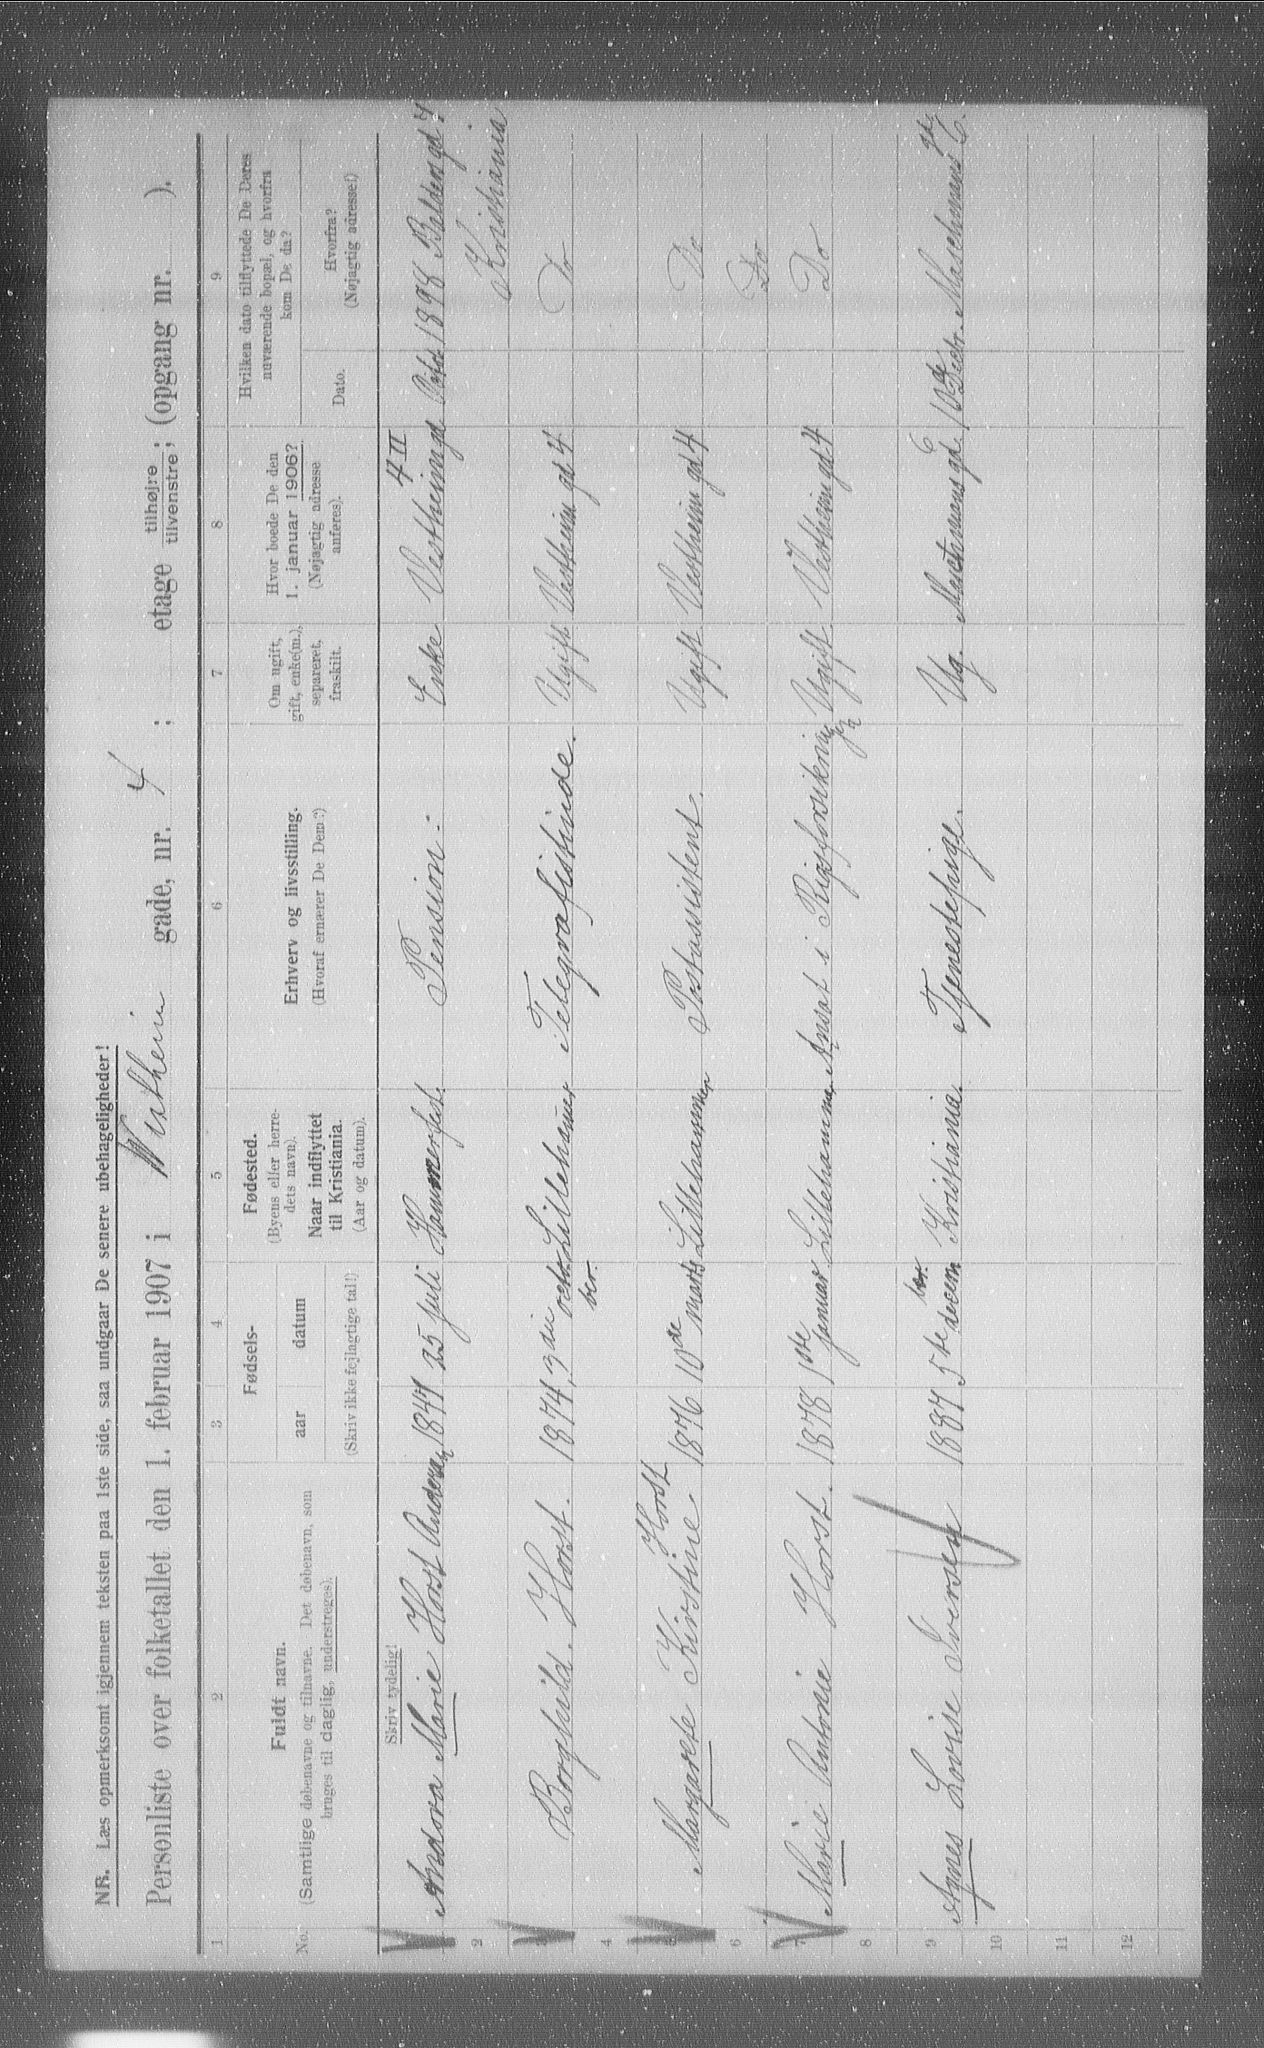 NB. Læs opmerksomt igjennem teksten paa 1ste side, saa undgaar De senere ubehageligheder!
Personliste over folketallet den 1. februar 1907 i Vestheim gade, nr. 4 ; etage tilhøjre tilvenstre ; (opgang nr. ).
1 2 3 4 5 6 7 8 9
No.
Fuldt navn.
(Samtlige døbenavne og tilnavne. Det døbenavn, som
bruges til daglig, understreges).
Fødsels-
aar datum
(Skriv ikke fejlagtige tal!)
Fødested.
(Byens eller herre-
dets navn).
Naar indflyttet
til Kristiania.
(Aar og datum).
Erhverv og livsstilling.
(Hvoraf ernærer De Dem?)
Om ugift,
gift, enke(m.),
separeret,
fraskilt.
Hvor boede De den
1. januar 1906?
(Nøjagtig adresse
anføres).
Hvilken dato tilflyttede De Deres
nuværende bopæl, og hvorfra
kom De da?
Dato.
Hvorfra?
(Nøjagtig adresse!)
Skriv tydelig!
4 II
Marie Horst 1847 25 juli Hammerfest. Pension. Enke Vestheimgd 1898
Kristiania
3 Borghild. Horst. 1874, 3die octo Lillehamer Telegrafistinde. Ugift Vestheim gd 4 Do
ber.
Horst
5 Margarete Kirstine. 1876 10de marts Lillehammer Postassistent. Ugift Vestheim gd 4 Do
6 Do
7 Marie Antonie Horst. 1878 1ste januar Lillehammer Ansat i Ugift Vestheim gd 4 Do
8
ber.
9 Agnes Lovise Iversen 1887 5te decem Kristiania. Tjenestepige. Ug.
10
11
12